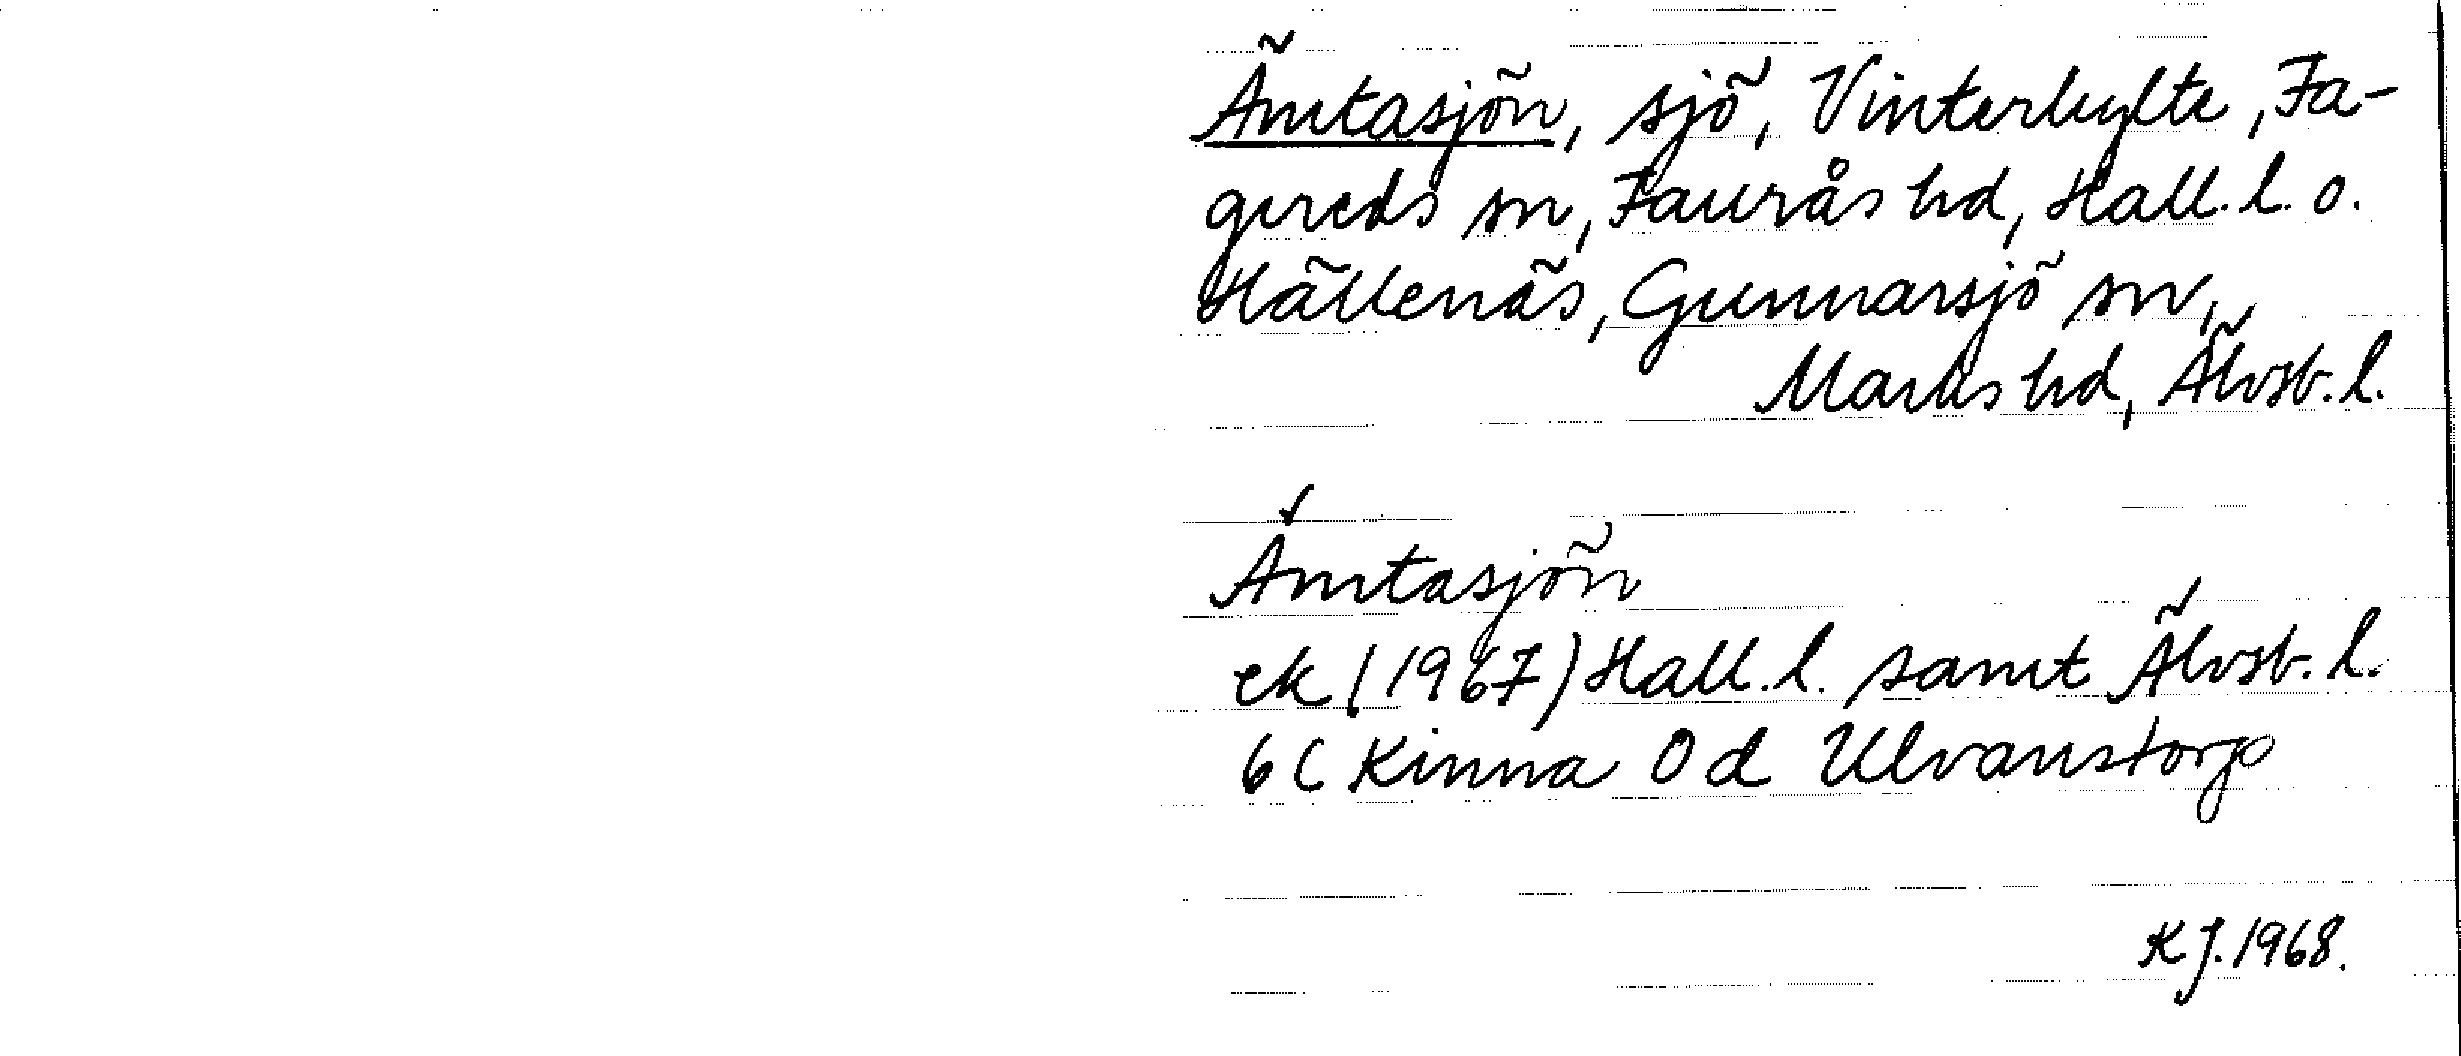 Ämtasjön, sjö, Vinterhylte, Fa-
gereds sn, Faurås hd, Hall. l. o.
Hällenäs, Gunnarsjö sn,
Marks hd, Älvsb. l.
Ämtasjön
ek (1967) Hall. l. samt Älvsb. l.
6C Kinna 0d Ulvanstorp
KJ. 1968.